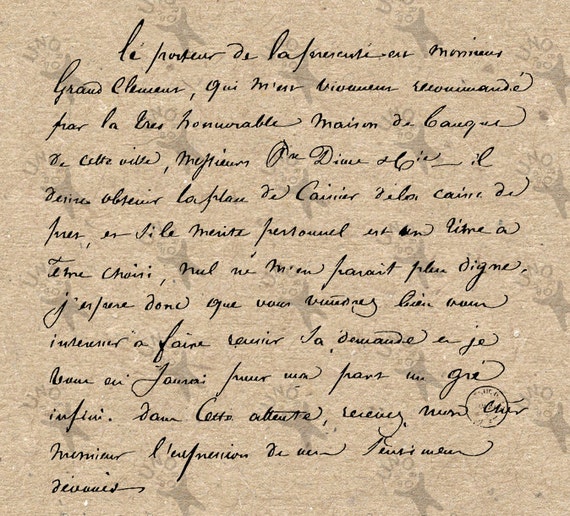 lé porteur de la presente est monsieur
Grand Clement, qui m'est vivement recommandé
par la tres honnorable maison de banque
de cette ville, messieurs Pre Dime & Cie il
desire obtenir la place de Caissier de la caisse de
pret, et si le merite personnel est un titre à
l'etre choisi, nul ne m'en parait plus digne.
j'espere donc que vous voudrez bien vous
interesser à faire reussir sa demande et je
vous en saurai pour ma part un gré
infini. dans cette attente, recevez mon cher
monsieur l'expression de mes sentimens
devoués